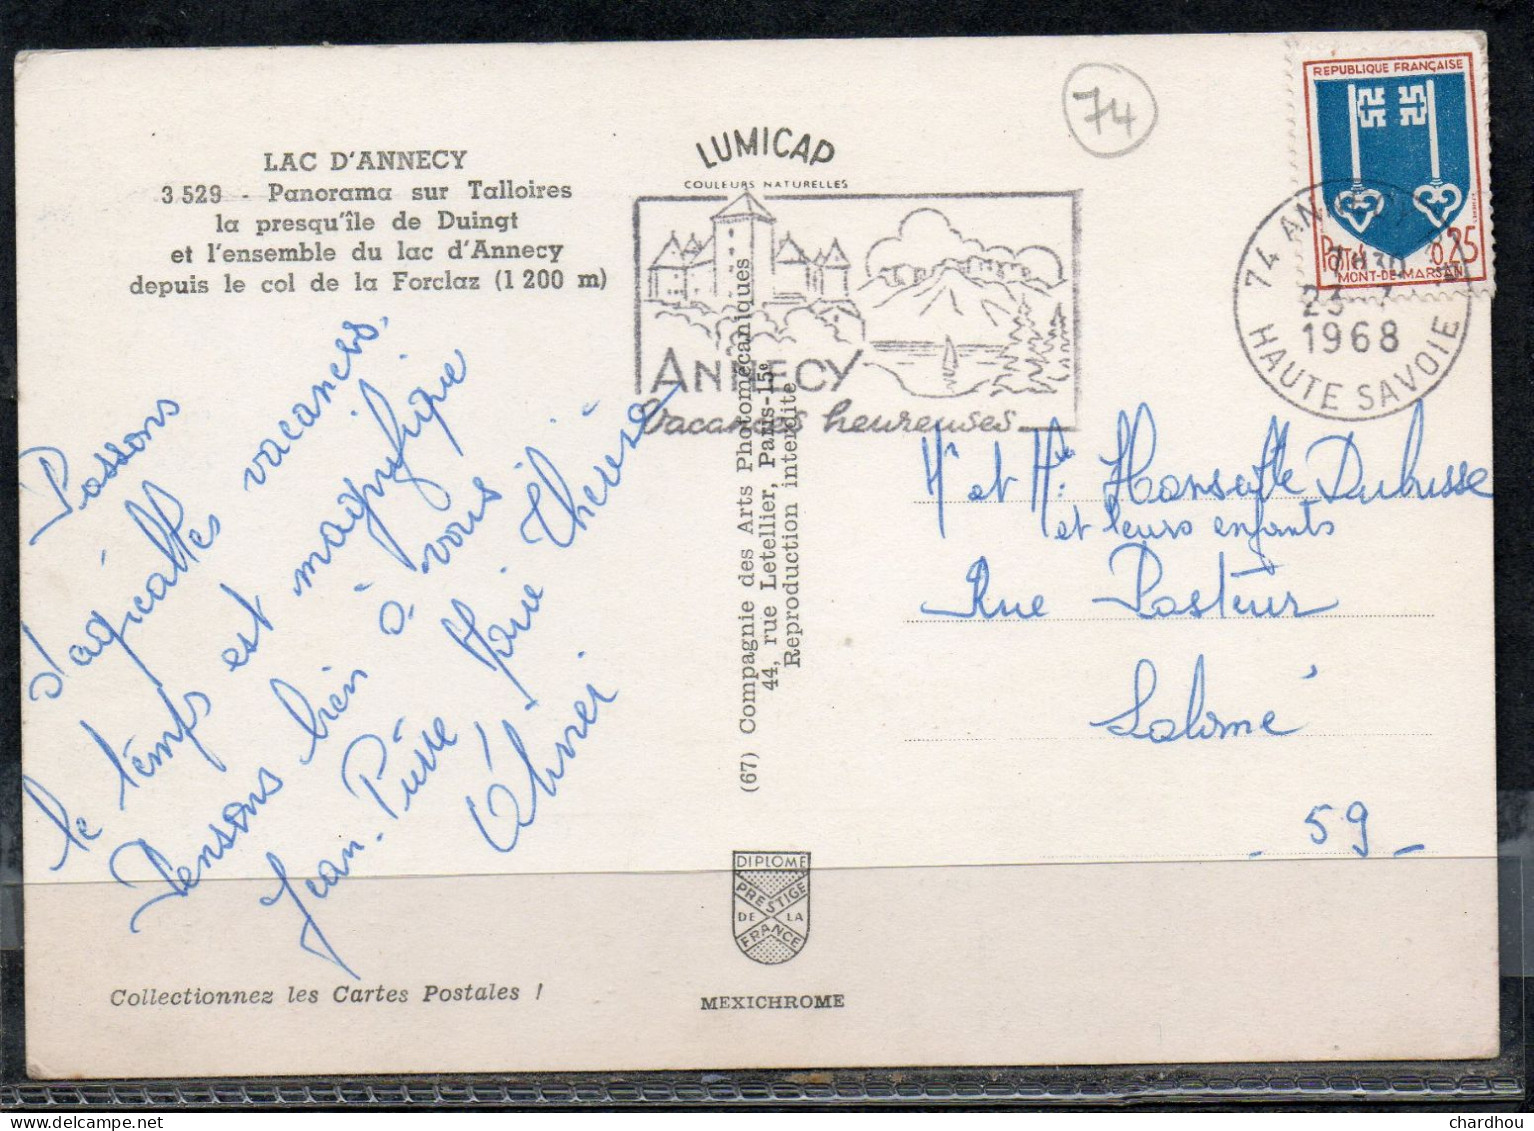 LAC D'ANNECY
3.529 - Panorama sur Talloires
la presqu'île de Duingt
et l'ensemble du lac d'Annecy
depuis le col de la Forclaz (1 200 m)
LUMICAP
COULEURS NATURELLES
ANNECY
Vacances heureuses
74
REPUBLIQUE FRANÇAISE
0,25
MONT-DE-MARSAN
74 ANNECY
23 - 7
1968
HAUTE SAVOIE
Passons
d'agréables vacances.
le temps est magnifique
Pensons bien à vous
Jean-Pierre Marie Thérèse
Olivier
(67) Compagnie des Arts Photomécaniques
44, rue Letellier, Paris-15e
Reproduction interdite
Mr et Me Dubusse
et leurs enfants
Rue Pasteur
Salomé
- 59 -
DIPLOME
PRESTIGE
DE LA
FRANCE
MEXICHROME
Collectionnez les Cartes Postales !
chardhou